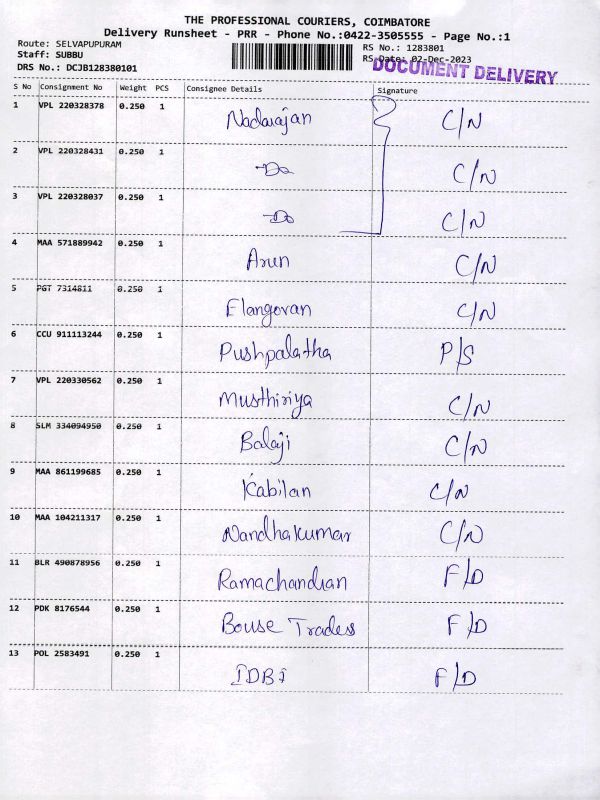 THE PROFESSIONAL COURIERS, COIMBATORE
Delivery Runsheet - PRR - Phone No.:0422-3505555 - Page No.:1
Route: SELVAPUPURAM
RS No.: 1283801
Staff: SUBBU
RS Date: 02-Dec-2023
DRS No.: DCJB128380101
DOCUMENT DELIVERY
S No Consignment No Weight PCS Consignee Details Signature
1 VPL 220328378 0.250 1 Nadarajan C/N
2 VPL 220328431 0.250 1 -Do C/N
3 VPL 220328037 0.250 1 -Do C/N
4 MAA 571889942 0.250 1 Arun C/N
5 PGT 7314811 0.250 1 Elangovan C/N
6 CCU 911113244 0.250 1 Pushpalatha P/S
7 VPL 220330562 0.250 1 Musthiriya C/N
8 SLM 334094950 0.250 1 Balaji C/N
9 MAA 861199685 0.250 1 Kabilan C/N
10 MAA 104211317 0.250 1 Nandhakumar C/N
11 BLR 490878956 0.250 1 Ramachandran F/D
12 PDK 8176544 0.250 1 Bouse Trades F/D
13 POL 2583491 0.250 1 IDBI F/D